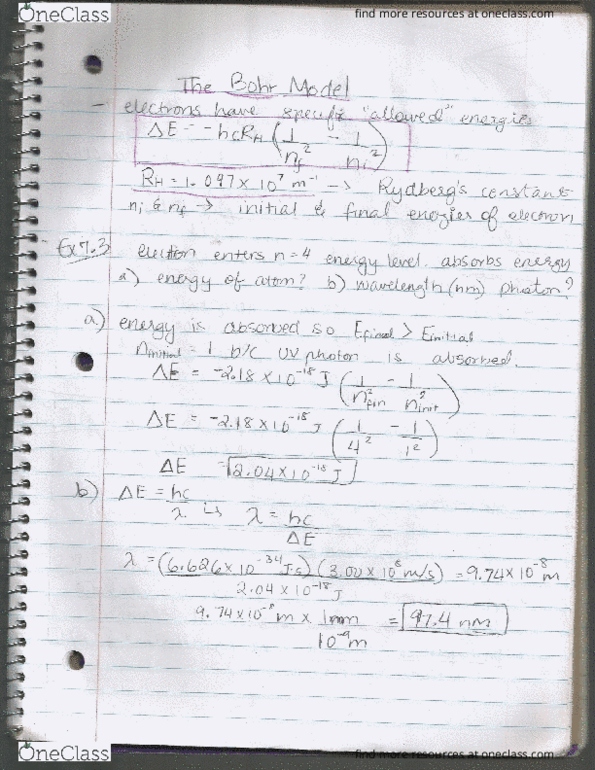 OneClass
find more resources at oneclass.com
The Bohr Model
- electrons have specific "allowed" energies
ΔE = -hcRH (1/nf² - 1/ni²)
RH = 1.097 × 10⁷ m⁻¹ -> Rydberg's constant
ni & nf -> initial & final energies of electron
Ex 7.3 electron enters n=4 energy level. absorbs energy
a) energy of atom? b) wavelength (nm) photon?
a) energy is absorbed so Efinal > Einitial
ninitial = 1 b/c UV photon is absorbed.
ΔE = -2.18 × 10⁻¹⁸ J (1/n²fin - 1/n²init)
ΔE = -2.18 × 10⁻¹⁸ J (1/4² - 1/1²)
ΔE = 2.04 × 10⁻¹⁸ J
b) ΔE = hc/λ λ = hc/ΔE
λ = (6.626 × 10⁻³⁴ J·s)(3.00 × 10⁸ m/s) = 9.74 × 10⁻⁸ m
2.04 × 10⁻¹⁸ J
9.74 × 10⁻⁸ m × 1nm/10⁻⁹m = 97.4 nm
OneClass
find more resources at oneclass.com